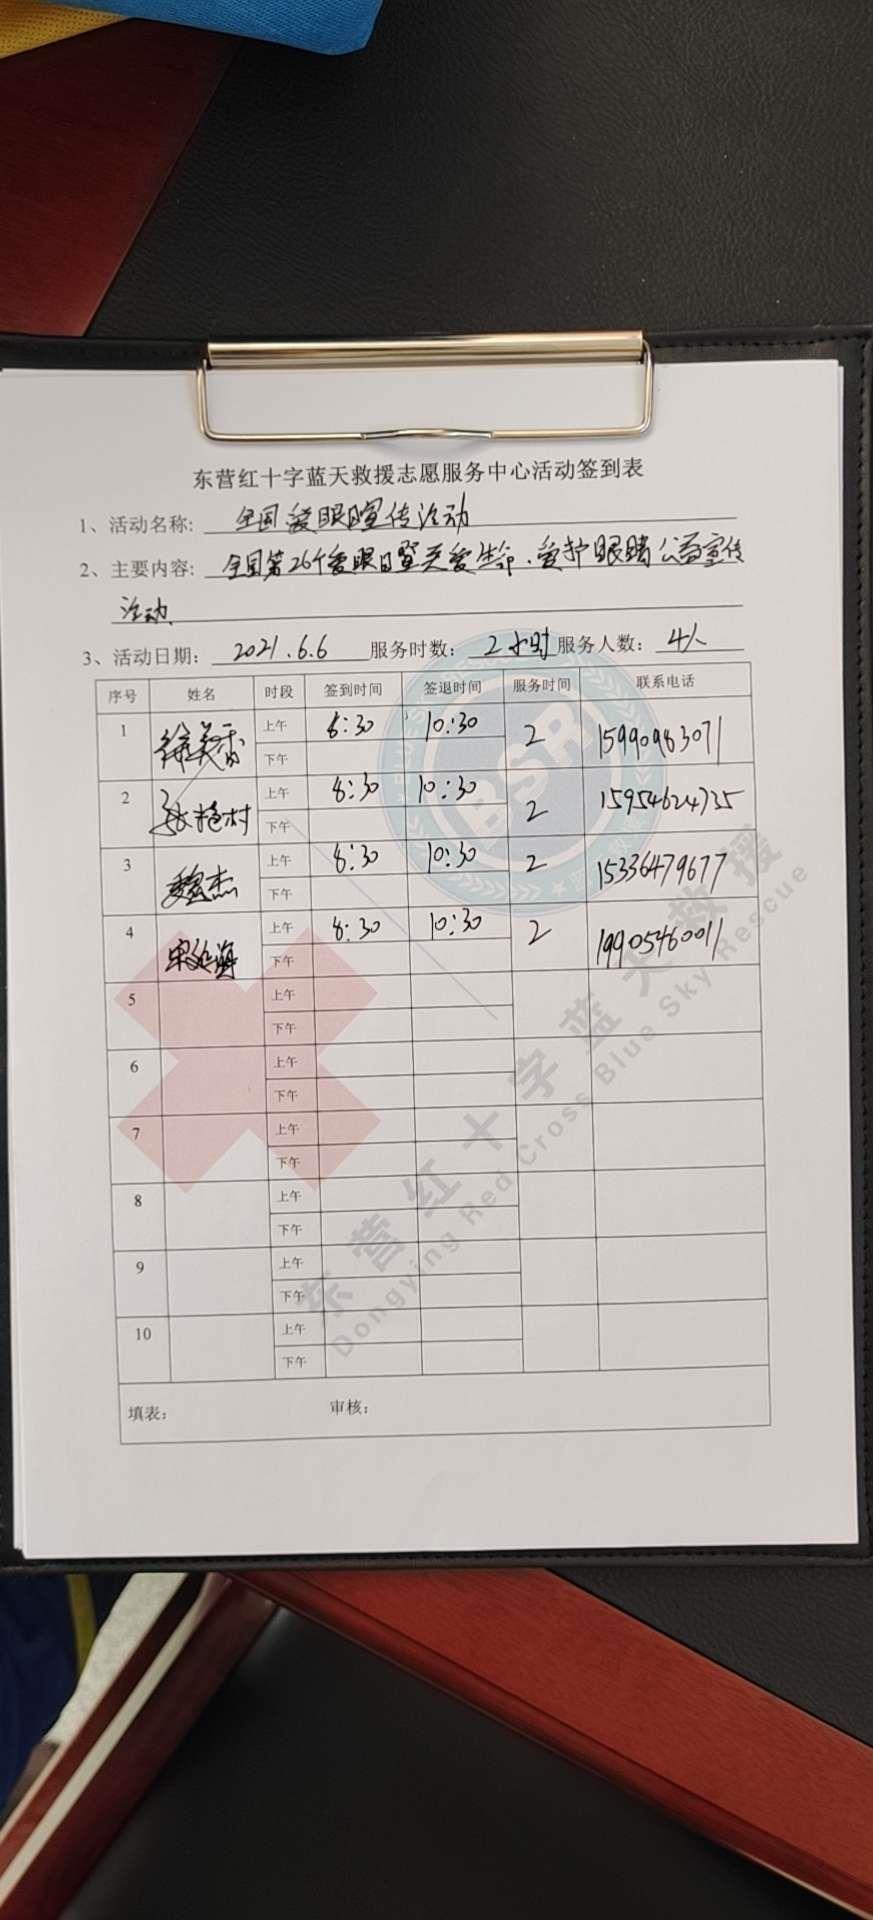 东营红十字蓝天救援志愿服务中心活动签到表
1、活动名称: 全国爱眼日宣传活动
2、主要内容: 全国第26个爱眼日暨关爱生命、爱护眼睛公益宣传
活动
3、活动日期: 2021.6.6 服务时数: 2小时 服务人数: 4人
序号 姓名 时段 签到时间 签退时间 服务时间 联系电话
1 上午 8:30 10:30 2 15990983071
下午
2 张艳村 上午 8:30 10:30 2 15954624735
下午
3 魏杰 上午 8:30 10:30 2 15336479677
下午
4 上午 8:30 10:30 2 19905460011
下午
5 上午
下午
6 上午
下午
7 上午
下午
8 上午
下午
9 上午
下午
10 上午
下午
填表: 审核:
BSR
东营红十字蓝天救援
Dongying Red Cross Blue Sky Rescue